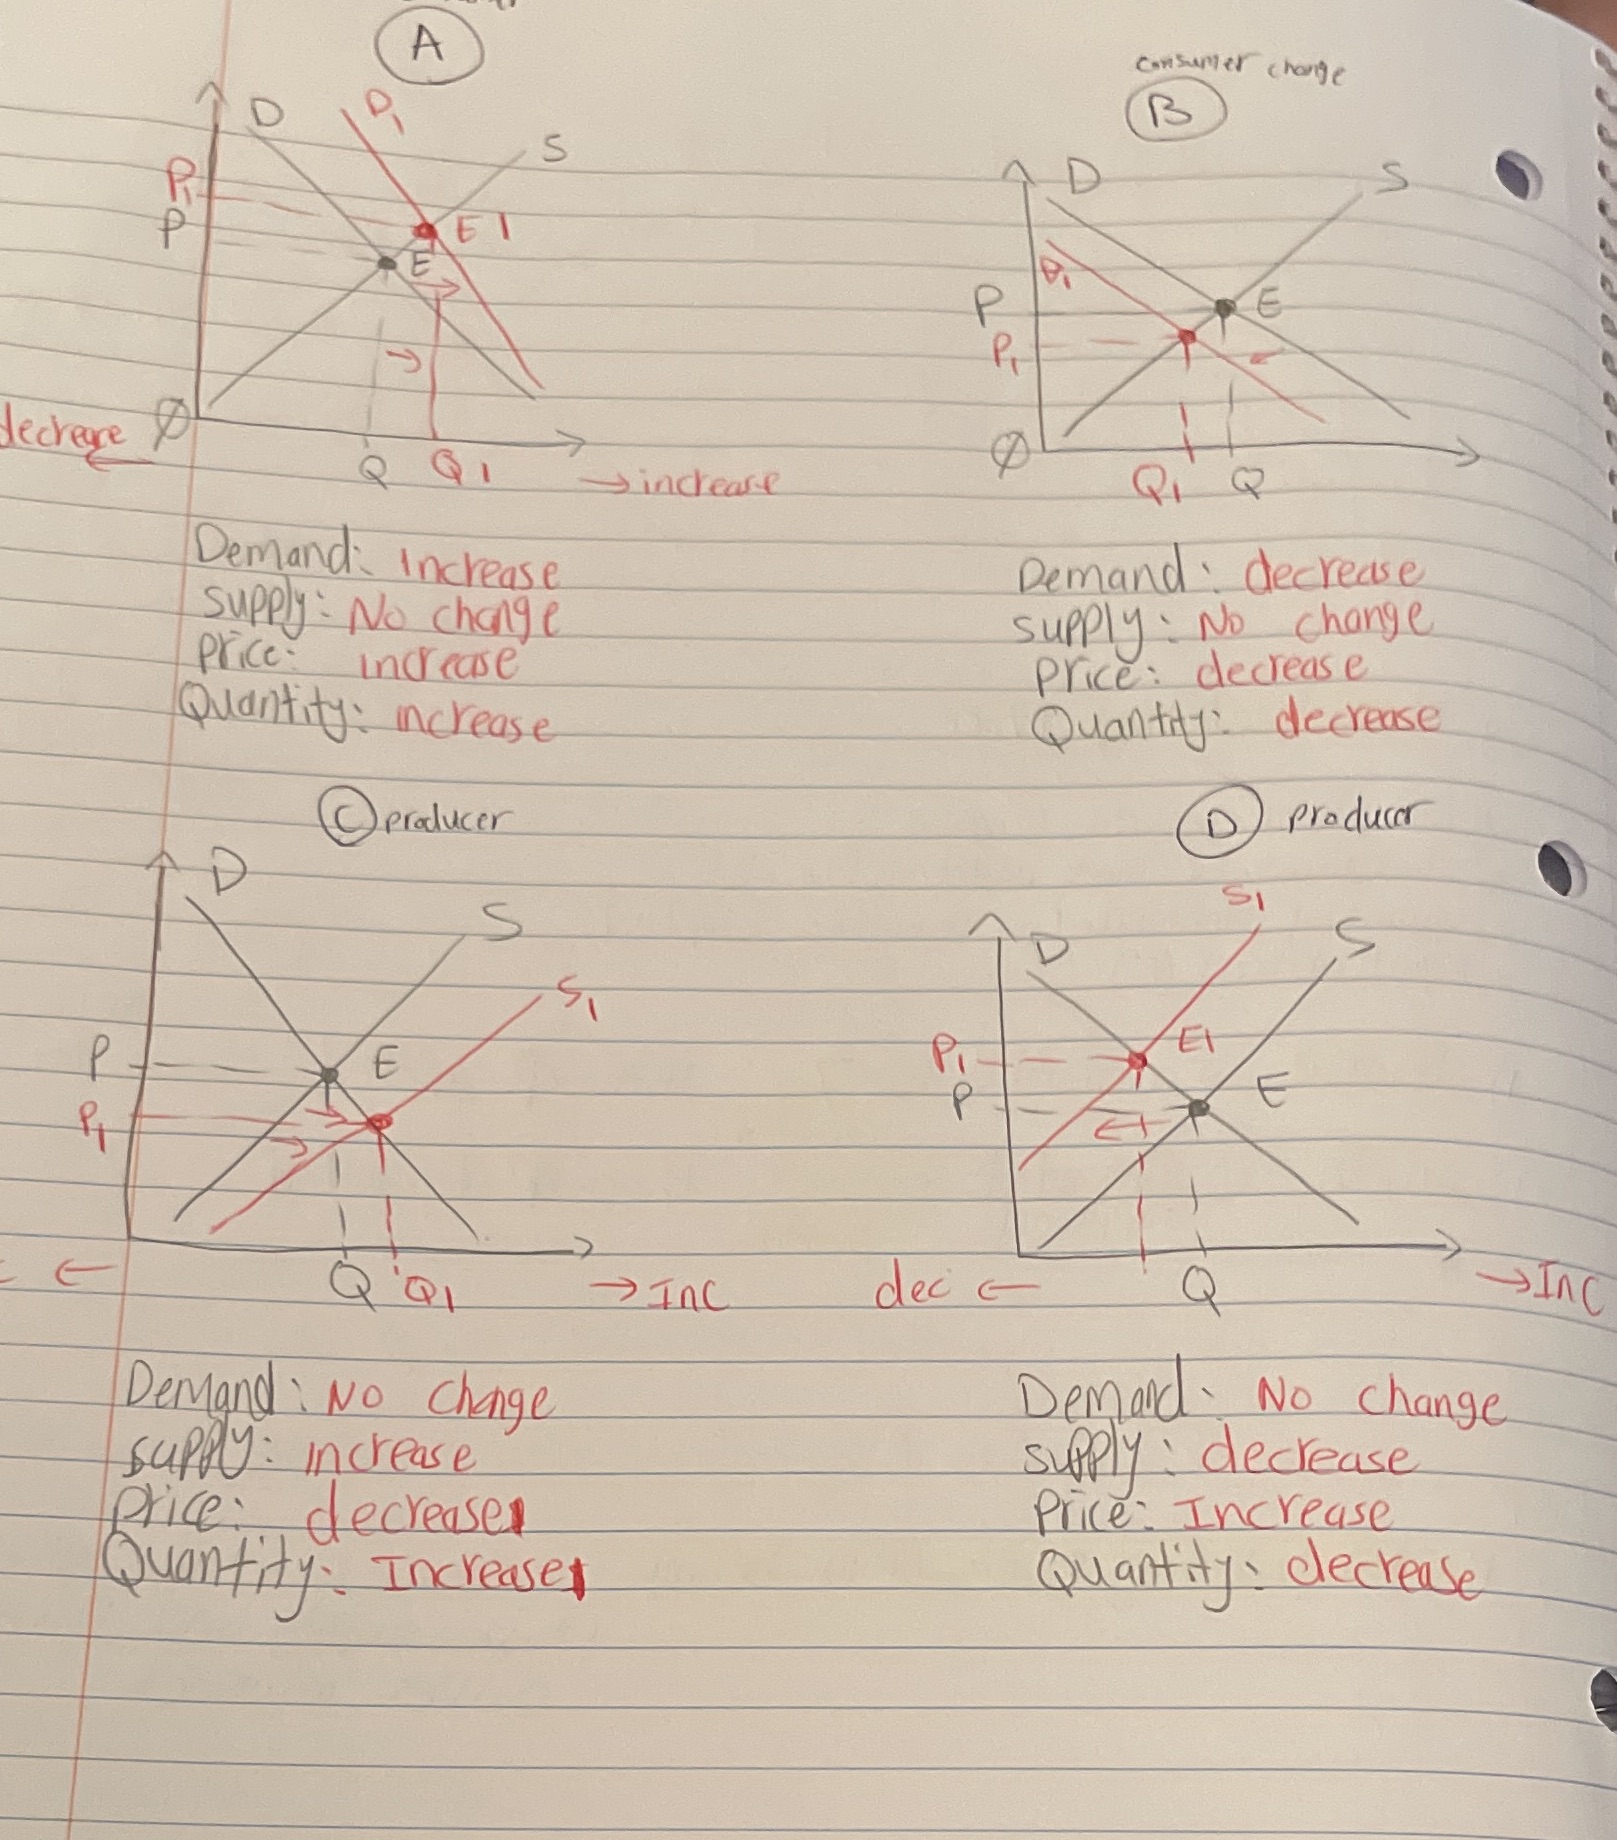 A
D
D1
S
P1
P
E1
E
decrease
Ø
Q
Q1
→ increase
Demand: increase
supply: No change
price: increase
Quantity: increase
consumer change
B
D
S
D1
P
E
P1
Ø
Q1
Q
Demand: decrease
supply: No change
price: decrease
Quantity: decrease
C producer
D
S
S1
P
E
P1
Q
Q1
→ Inc
Demand: No change
supply: increase
price: decrease
Quantity: Increase
D producer
S1
D
S
P1
E1
P
E
dec ←
Q
→ Inc
Demand: No change
supply: decrease
Price: Increase
Quantity: decrease